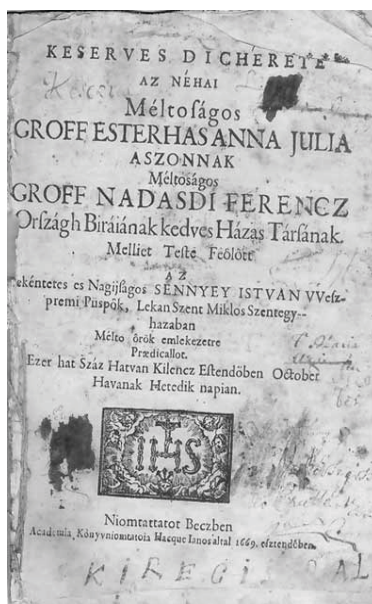 KESERVES DICHERETE
AZ NÉHAI
Méltoságos
GROFF ESTERHAS ANNA JULIA
ASZONNAK
Méltoságos
GROFF NADASDI FERENCZ
Országh Biráiának kedves Házas Társának.
Melliet Teste Feólótt
AZ
ekéntetes es Nagijságos SENNYEY ISTVAN VVesz-
premi Puspók, Lekan Szent Miklos Szentegy-
hazaban
Mélto órók emlekezetre
Prædicallot.
Ezer hat Száz Hatvan Kilencz Estendóben October
Havanak Hetedik napian.
IHS
Niomtattatot Beczben
Academia Kónyvniomtatoia Hacque Ianos által 1669. esztendóben.
KIREGI